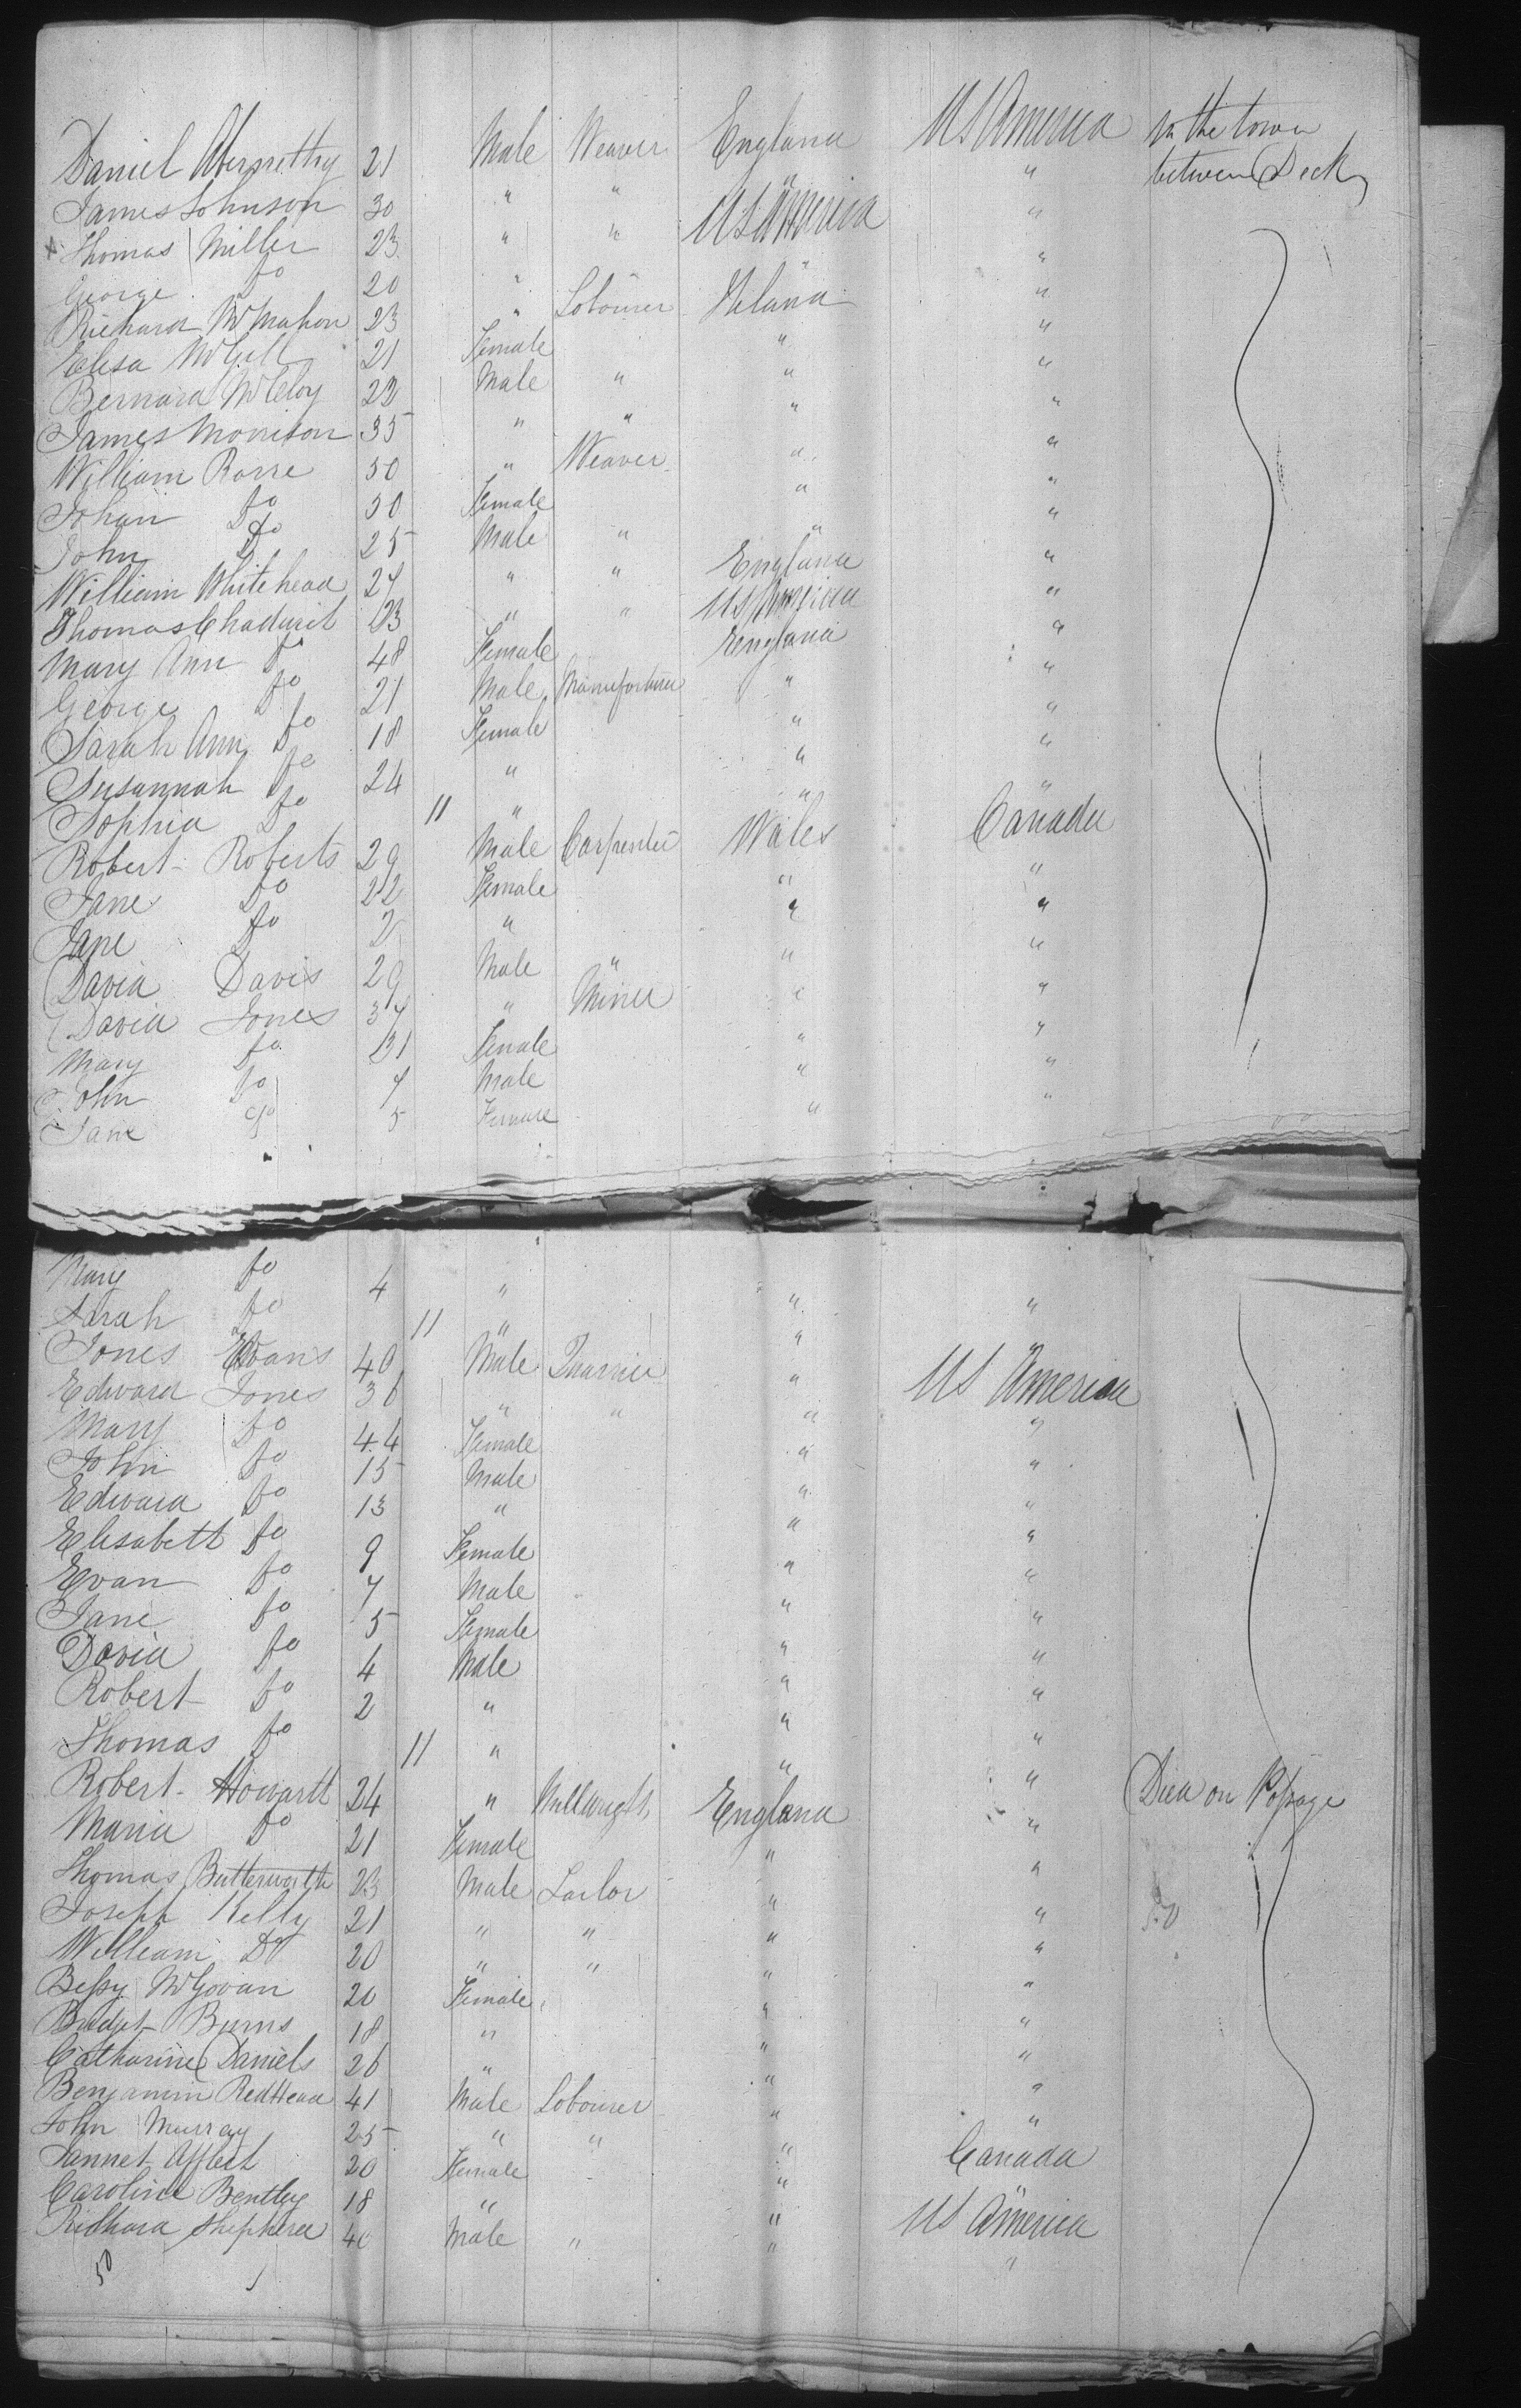 Daniel Abernethy 21 Male Weaver England US America In the lower
James Johnson 30 " " " " between Decks
x Thomas Miller 23 " " US America "
George Do 20 " " "
Richard McMahon 23 " Labourer Ireland "
Elisa McGill 21 Female " "
Bernard McElroy 22 Male " " "
James Morrison 35 " " " "
William Rorre 50 " Weaver " "
Johan Do 50 Female " "
John Do 25 Male " " "
William Whitehead 24 " " England "
Thomas Chadwick 23 " " US America "
Mary Ann Do 48 Female England "
George Do 21 Male Manufacturer " "
Sarah Ann Do 18 Female " "
Susannah Do 24 " " "
Sophia Do 11 " " "
Robert Roberts 29 Male Carpenter Wales Canada
Jane Do 22 Female " "
Jane Do 2 " " "
David Davis 29 Male " " "
David Jones 37 " Miner " "
Mary Do 31 Female " "
John Do 7 Male " "
Jane Do 5 Female " "
Mary Do 4 " " "
Sarah Do 11 " "
Jones Evans 40 Male Quarrier " US America
Edward Jones 36 " " " "
Mary Do 44 Female " "
John Do 15 Male " "
Edward Do 13 " " "
Elisabeth Do 9 Female " "
Evan Do 7 Male " "
Jane Do 5 Female " "
David Do 4 Male " "
Robert Do 2 " " "
Thomas Do 11 " " "
Robert Howarth 24 " Millwright England " Died on Passage
Maria Do 21 Female " "
Thomas Butterworth 23 Male Tailor " " Do
Joseph Kelly 21 " " " "
William Do 20 " " " "
Bessy McGovan 20 Female " "
Bridget Burns 18 " " "
Catharine Daniels 26 " " "
Benjamin RedHead 41 Male Labourer " "
John Murray 25 " " " Canada
Jannet Affleck 20 Female "
Caroline Bentley 18 " " US America
Richard Shepherd 40 Male " " "
50